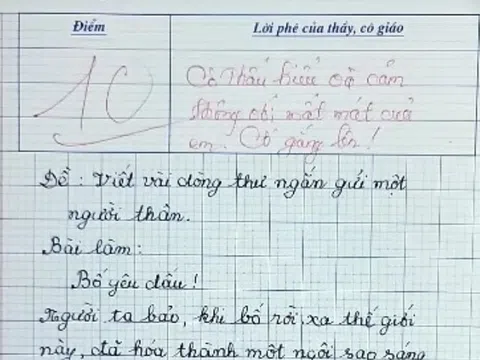 Điểm
Lời phê của thầy, cô giáo
10
Cô thấu hiểu và cảm
thông với mất mát của
em. Cố gắng lên!
Đề: Viết vài dòng thư ngắn gửi một
người thân.
Bài làm:
Bố yêu dấu!
Người ta bảo, khi bố rời xa thế giới
này, đã hóa thành một ngôi sao sáng